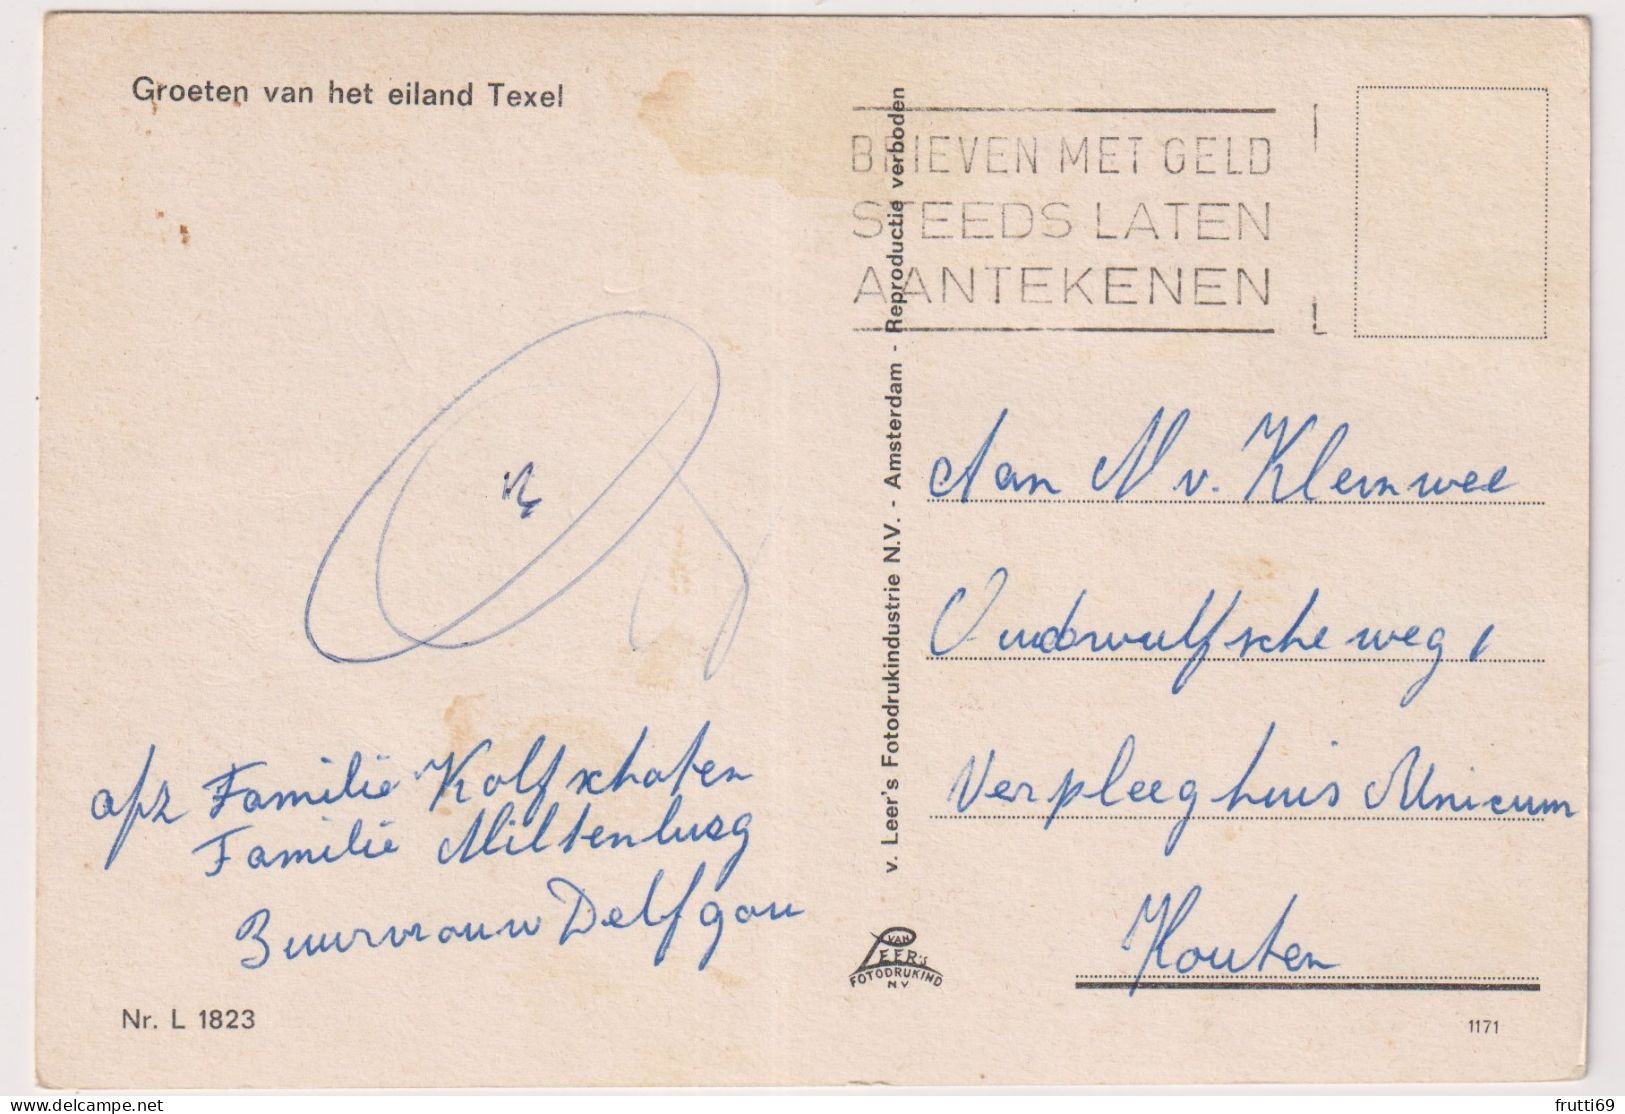 Groeten van het eiland Texel
BRIEVEN MET GELD
STEEDS LATEN
AANTEKENEN
v. Leer's Fotodrukindustrie N.V. - Amsterdam - Reproductie verboden
Aan N v. Kleinwee
Oudwulfscheweg 1
Verpleeghuis Unicum
Houten
afz Familië Kolfschoten
Familië Miltenburg
Buurvrouw Delfgou
VAN
LEER'S
FOTODRUKIND
NV
Nr. L 1823
1171
frutti69
delcampe.net